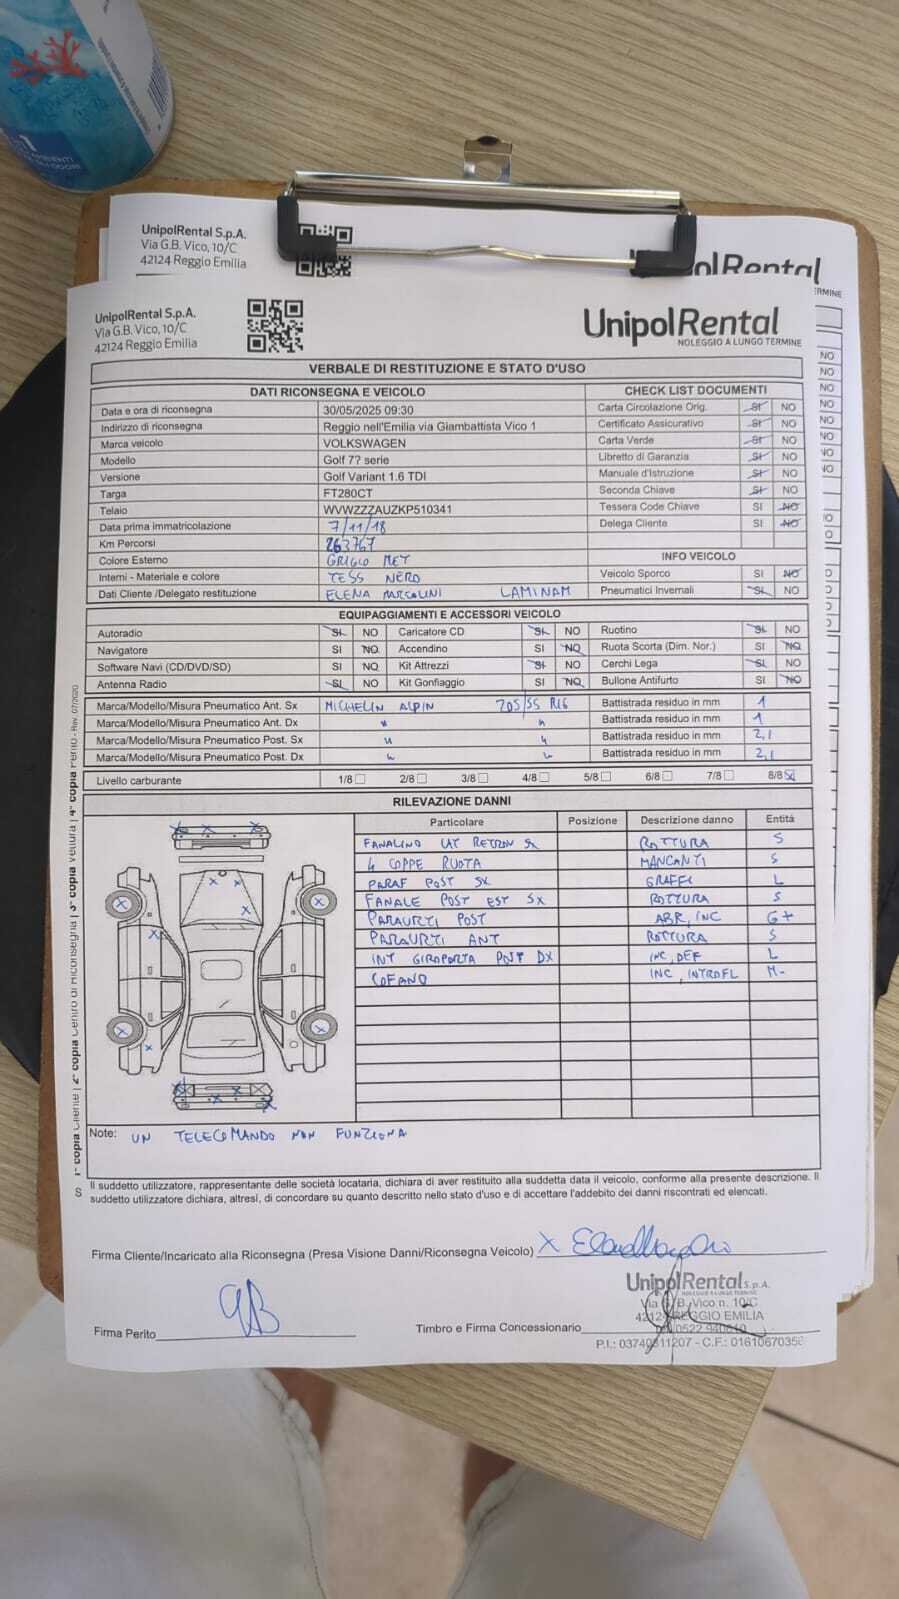 UnipolRental S.p.A.
Via G.B. Vico, 10/C
42124 Reggio Emilia
olRental
TERMINE
UnipolRental S.p.A.
Via G.B. Vico, 10/C
42124 Reggio Emilia
UnipolRental
NOLEGGIO A LUNGO TERMINE
VERBALE DI RESTITUZIONE E STATO D'USO
DATI RICONSEGNA E VEICOLO CHECK LIST DOCUMENTI
Data e ora di riconsegna 30/05/2025 09:30 Carta Circolazione Orig. SI NO
Indirizzo di riconsegna Reggio nell'Emilia via Giambattista Vico 1 Certificato Assicurativo SI NO
Marca veicolo VOLKSWAGEN Carta Verde SI NO
Modello Golf 7? serie Libretto di Garanzia SI NO
Versione Golf Variant 1.6 TDI Manuale d'Istruzione SI NO
Targa FT280CT Seconda Chiave SI NO
Telaio WVWZZZAUZKP510341 Tessera Code Chiave SI NO
Data prima immatricolazione 7/11/18 Delega Cliente SI NO
Km Percorsi 263767
Colore Esterno GRIGIO MET INFO VEICOLO
Interni - Materiale e colore TESS NERO Veicolo Sporco SI NO
Dati Cliente /Delegato restituzione ELENA LAMINAM Pneumatici Invernali SI NO
EQUIPAGGIAMENTI E ACCESSORI VEICOLO
Autoradio SI NO Caricatore CD SI NO Ruotino SI NO
Navigatore SI NO Accendino SI NO Ruota Scorta (Dim. Nor.) SI NO
Software Navi (CD/DVD/SD) SI NO Kit Attrezzi SI NO Cerchi Lega SI NO
Antenna Radio SI NO Kit Gonfiaggio SI NO Bullone Antifurto SI NO
Marca/Modello/Misura Pneumatico Ant. Sx MICHELIN ALPIN 205/55 R16 Battistrada residuo in mm 1
Marca/Modello/Misura Pneumatico Ant. Dx " " Battistrada residuo in mm 1
Marca/Modello/Misura Pneumatico Post. Sx " " Battistrada residuo in mm 2,1
Marca/Modello/Misura Pneumatico Post. Dx " " Battistrada residuo in mm 2,1
Livello carburante 1/8 2/8 3/8 4/8 5/8 6/8 7/8 8/8
RILEVAZIONE DANNI
Particolare Posizione Descrizione danno Entità
FANALINO LAT RETROV SX ROTTURA S
4 COPPE RUOTA MANCANTI S
PARAF POST SX GRAFFI L
FANALE POST EST SX ROTTURA S
PARAURTI POST ABR, INC G+
PARAURTI ANT ROTTURA S
INT GIROPORTA POST DX INC, DEF L
COFANO INC, INTROFL M-
Note: UN TELECOMANDO NON FUNZIONA
Il suddetto utilizzatore, rappresentante delle società locataria, dichiara di aver restituito alla suddetta data il veicolo, conforme alla presente descrizione. Il
suddetto utilizzatore dichiara, altresì, di concordare su quanto descritto nello stato d'uso e di accettare l'addebito dei danni riscontrati ed elencati.
Firma Cliente/Incaricato alla Riconsegna (Presa Visione Danni/Riconsegna Veicolo) X
UnipolRental S.p.A.
NOLEGGIO A LUNGO TERMINE
Via G.B. Vico n. 10/C
42124 REGGIO EMILIA
Firma Perito Timbro e Firma Concessionario
P.I.: 03740811207 - C.F.: 01610670356